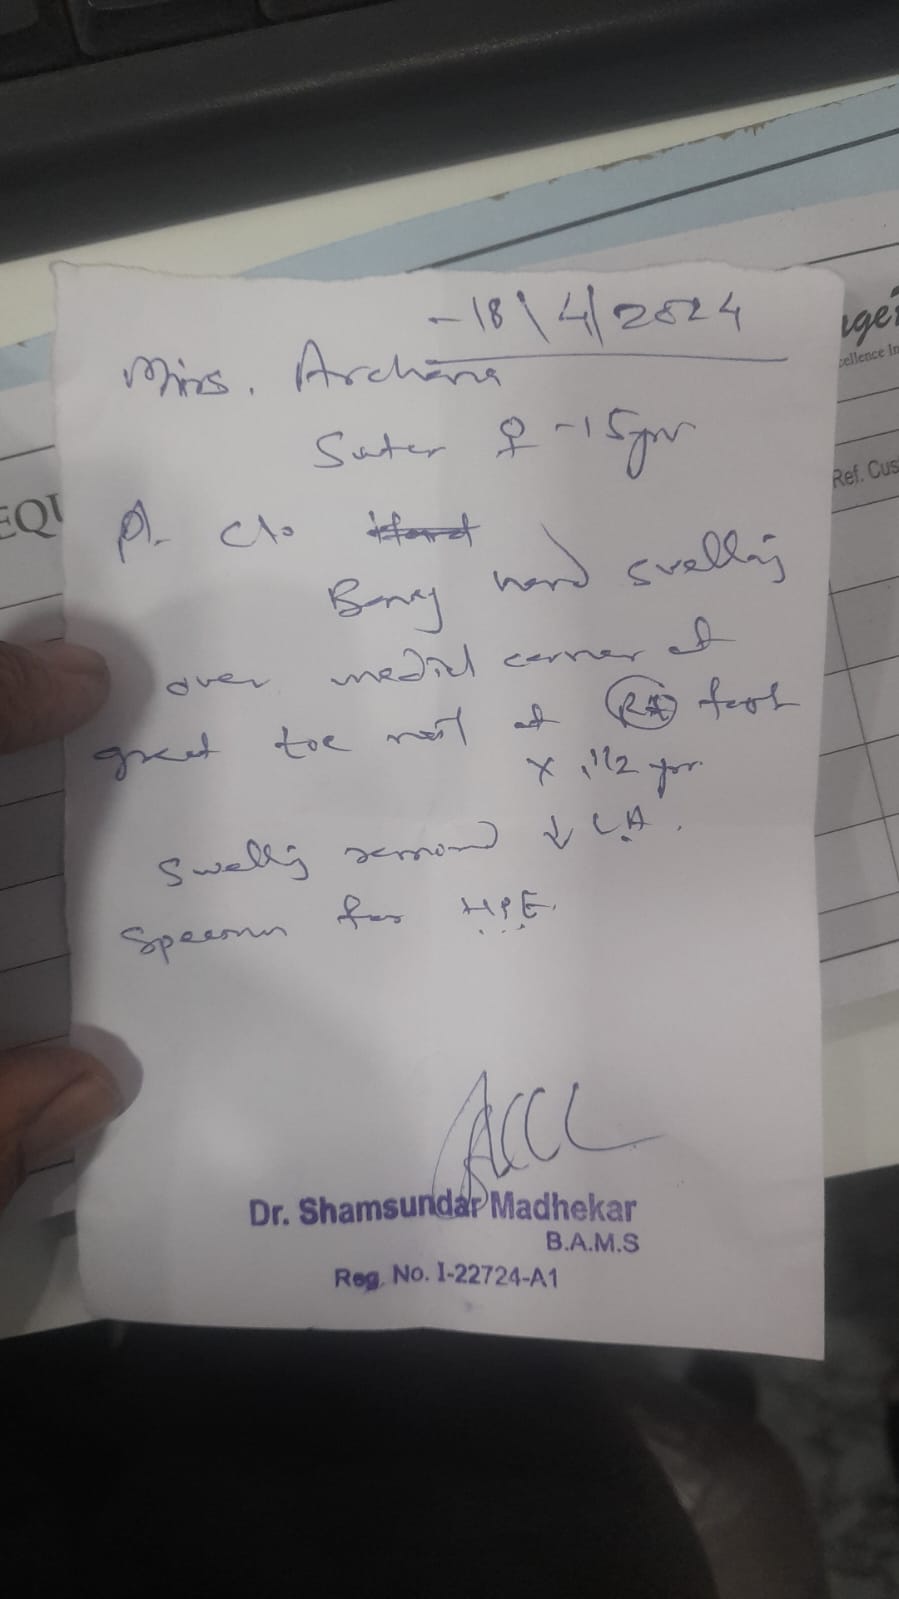 - 18/4/2024
Miss. Archana
Suter ♀ - 15 yrs
Pt. c/o
Bony hard swelling
over medial corner of
great toe nail of Rt foot
x 1 1/2 yr.
Swelling removed ↓ L.A.
Specimen for H.P.E.
Dr. Shamsundar Madhekar
B.A.M.S
Reg. No. I-22724-A1
EQU
age
cellence In
Ref. Cus